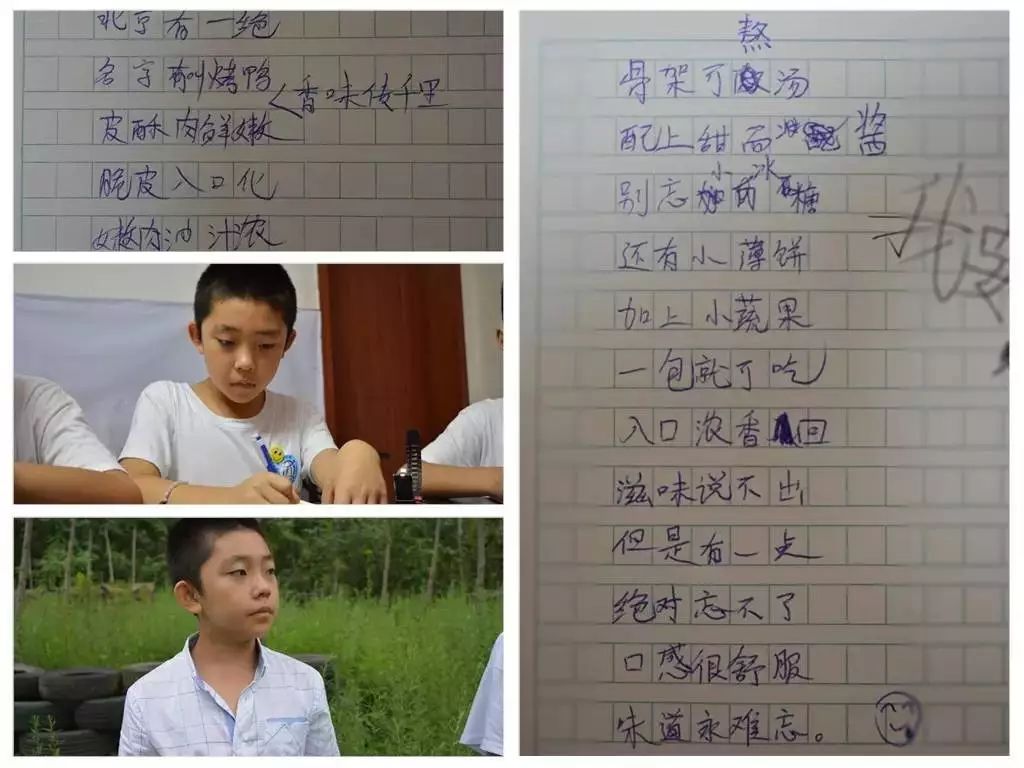 北京有一绝
名字叫烤鸭
香味传千里
皮酥肉鲜嫩
脆皮入口化
嫩肉油汁浓
熬
骨架可汤
配上甜面酱
别忘小冰糖
还有小薄饼
加上小蔬果
一包就可吃
入口浓香回
滋味说不出
但是有一点
绝对忘不了
口感很舒服
味道永难忘。